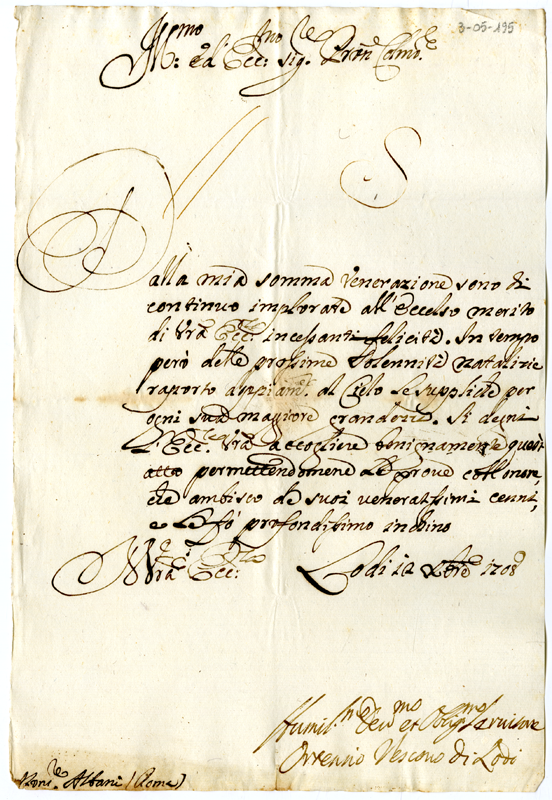 3-05-195
Ill.mo ed Ecc.mo Sig.re Pron Colmo
Dalla mia somma venerazione sono di
continuo implorate all'Eccelso merito
di Vra Ecc.za incessanti felicità. In tempo
però delle prossime Solennità natalizie
raporto al Cielo le suppliche per
ogni sua maggiore grandezza. Si degni
l'Ecc.za Vra accogliere benignamente quest
atto permettendomene le prove coll'onore,
che ambisco de suoi veneratissimi cenni,
e le fò profondissimo inchino
Di Vra Ecc.za
Lodi 12 Xbre 1708
Humil.mo Dev.mo et Oblig.mo Servitore
Ortensio Vescovo di Lodi
Albani (Roma)